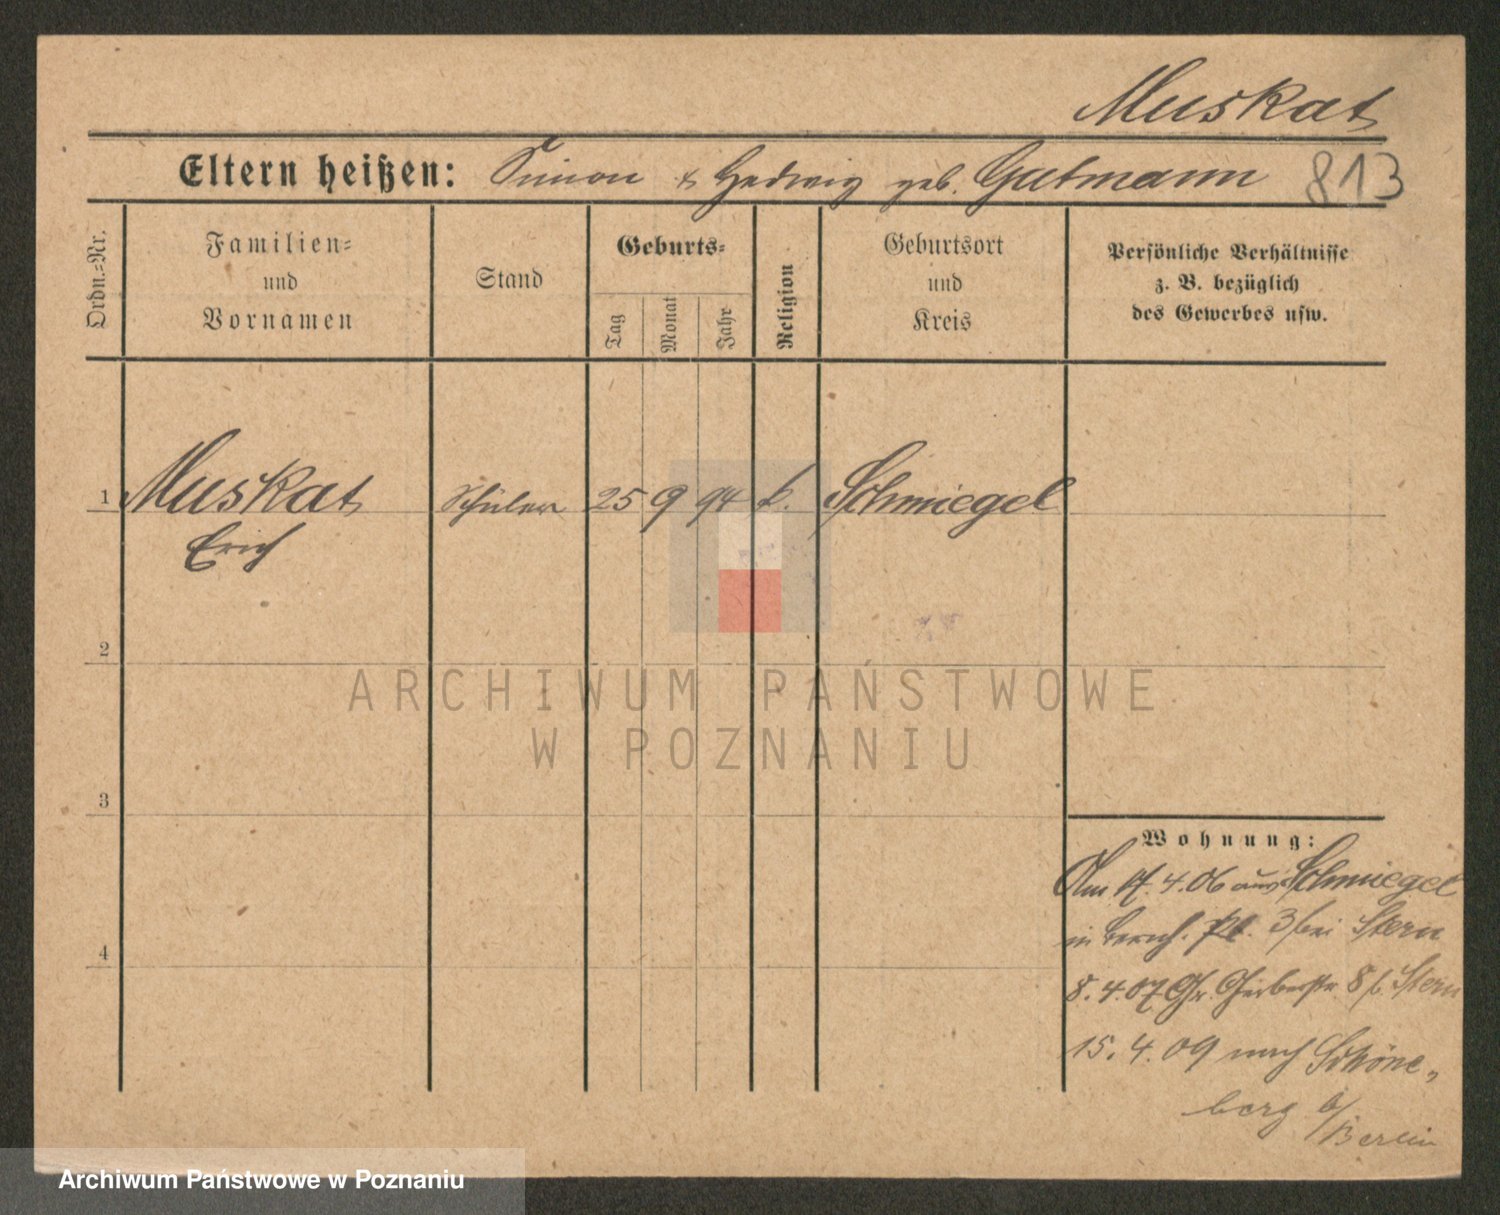 Muskat
Eltern heißen: Simon & Hedwig geb. Gutmann 813
Ordn.=Nr.
Familien= und Vornamen
Stand
Geburts=
Tag
Monat
Jahr
Religion
Geburtsort und Kreis
Persönliche Verhältnisse
z. B. bezüglich
des Gewerbes usw.
1 Muskat Schüler 25 9 94 Schmiegel
Erich
2
ARCHIWUM PAŃSTWOWE
W POZNANIU
3
Wohnung:
Am 4.06 aus Schmiegel
in Pl. 3 bei Stern
4
8.4.07 Gr. Gerberstr. 8 b. Stern
15.4.09 nach Schöne-
berg b/Berlin
Archiwum Państwowe w Poznaniu